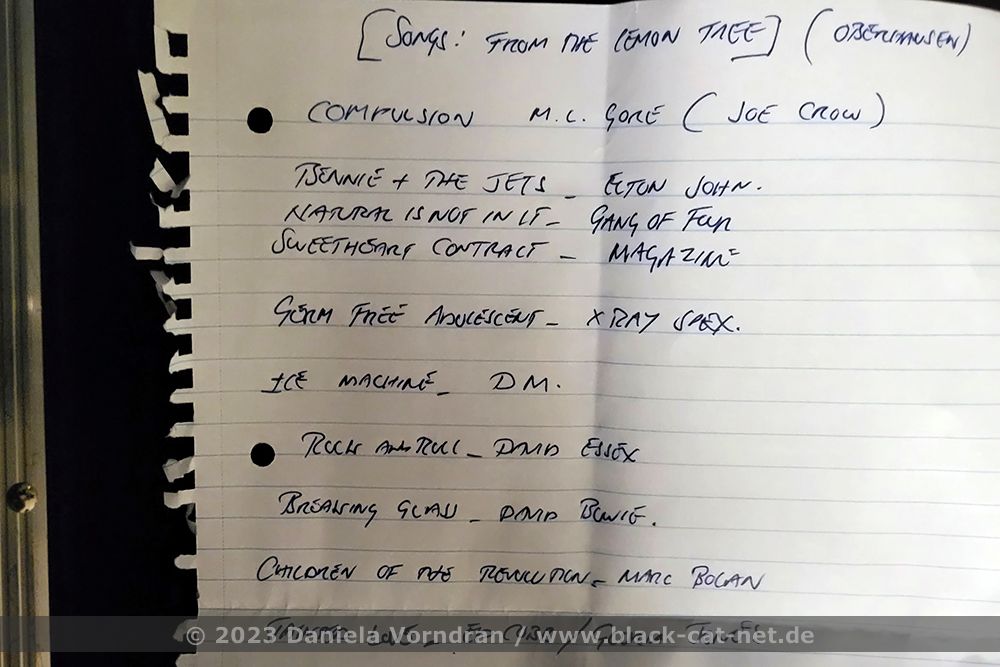 [SONGS: FROM THE LEMON TREE] (OBERHAUSEN)
COMPULSION M.C. GORE (JOE CROW)
BENNIE + THE JETS _ ELTON JOHN.
NATURAL IS NOT IN IT _ GANG OF FOUR
SWEETHEART CONTRACT _ MAGAZINE
GERM FREE ADOLESCENT _ X RAY SPEX.
ICE MACHINE _ D M.
ROCK AND ROLL _ DAVID ESSEX
BREAKING GLASS _ DAVID BOWIE.
CHILDREN OF THE REVOLUTION _ MARC BOLAN
LOVE
© 2023 Daniela Vorndran / www.black-cat-net.de